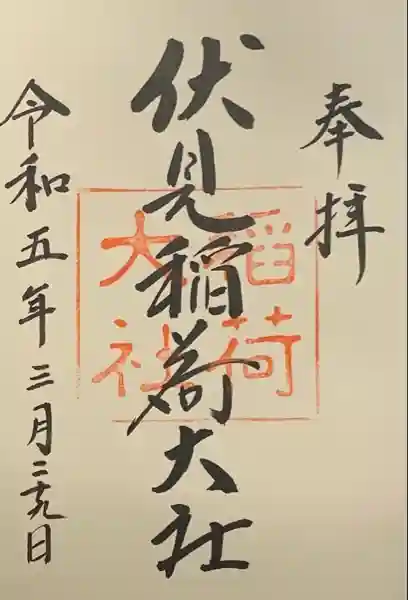 奉拝
伏見稲荷大社
稲荷
大社
令和五年三月二十九日